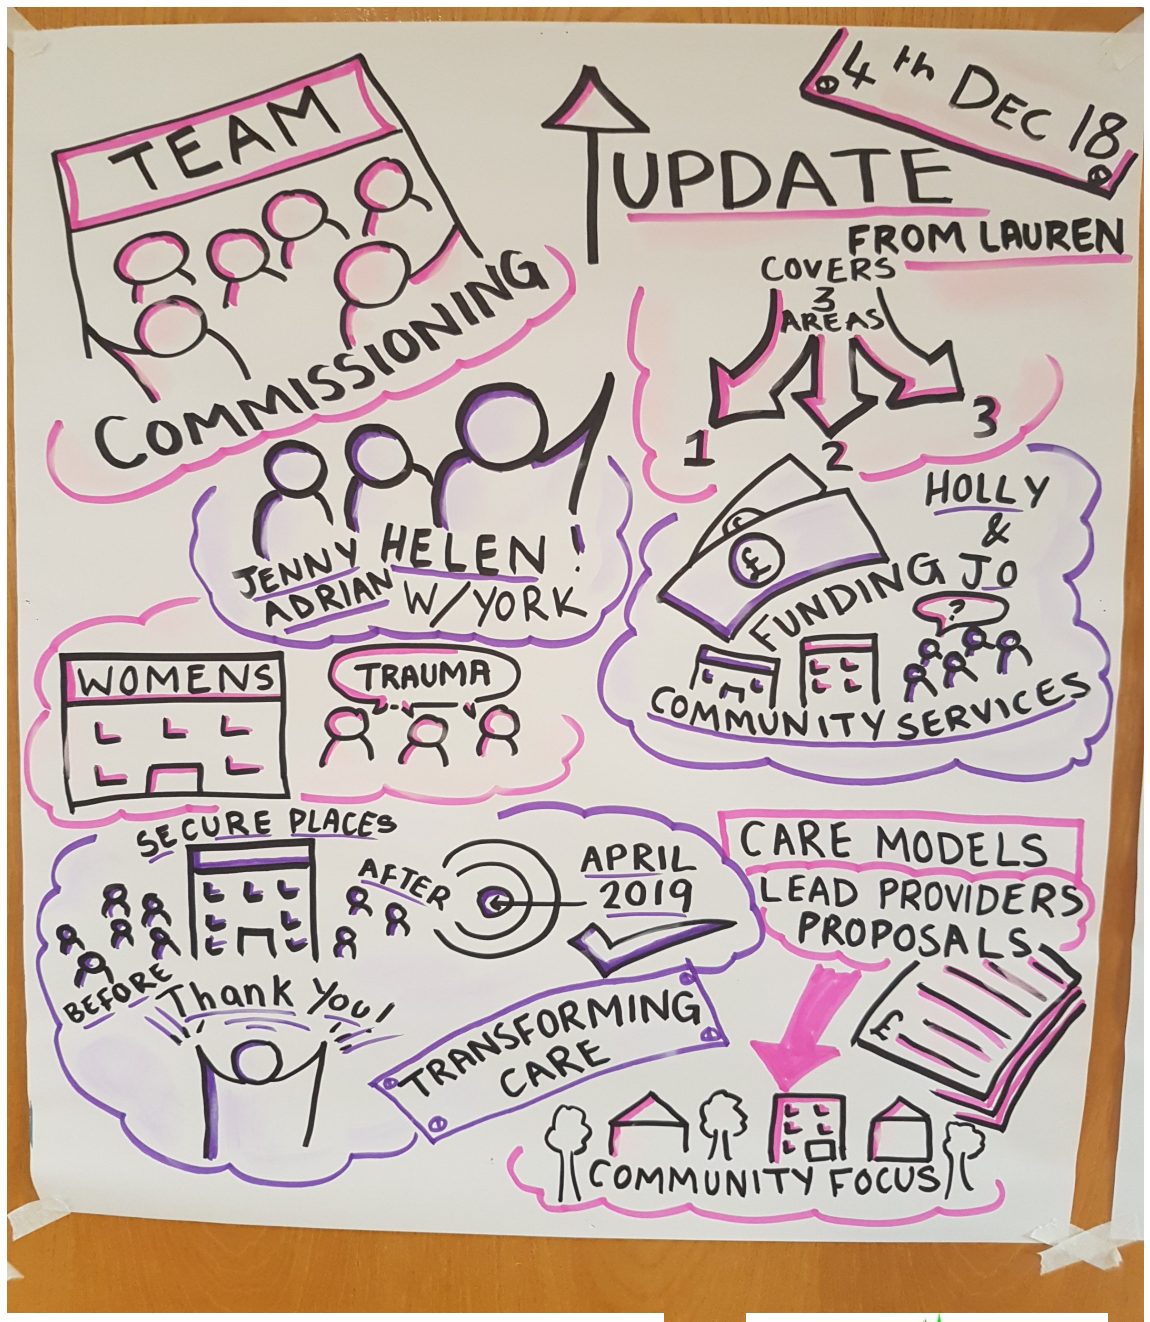 TEAM
COMMISSIONING
4th DEC 18
UPDATE
FROM LAUREN
COVERS
3
AREAS
1
2
3
JENNY
ADRIAN
HELEN !
W/YORK
HOLLY
&
JO
£
£
FUNDING
?
COMMUNITY SERVICES
WOMENS
TRAUMA
SECURE PLACES
BEFORE
AFTER
APRIL
2019
Thank You!
TRANSFORMING
CARE
CARE MODELS
LEAD PROVIDERS
PROPOSALS
£
COMMUNITY FOCUS